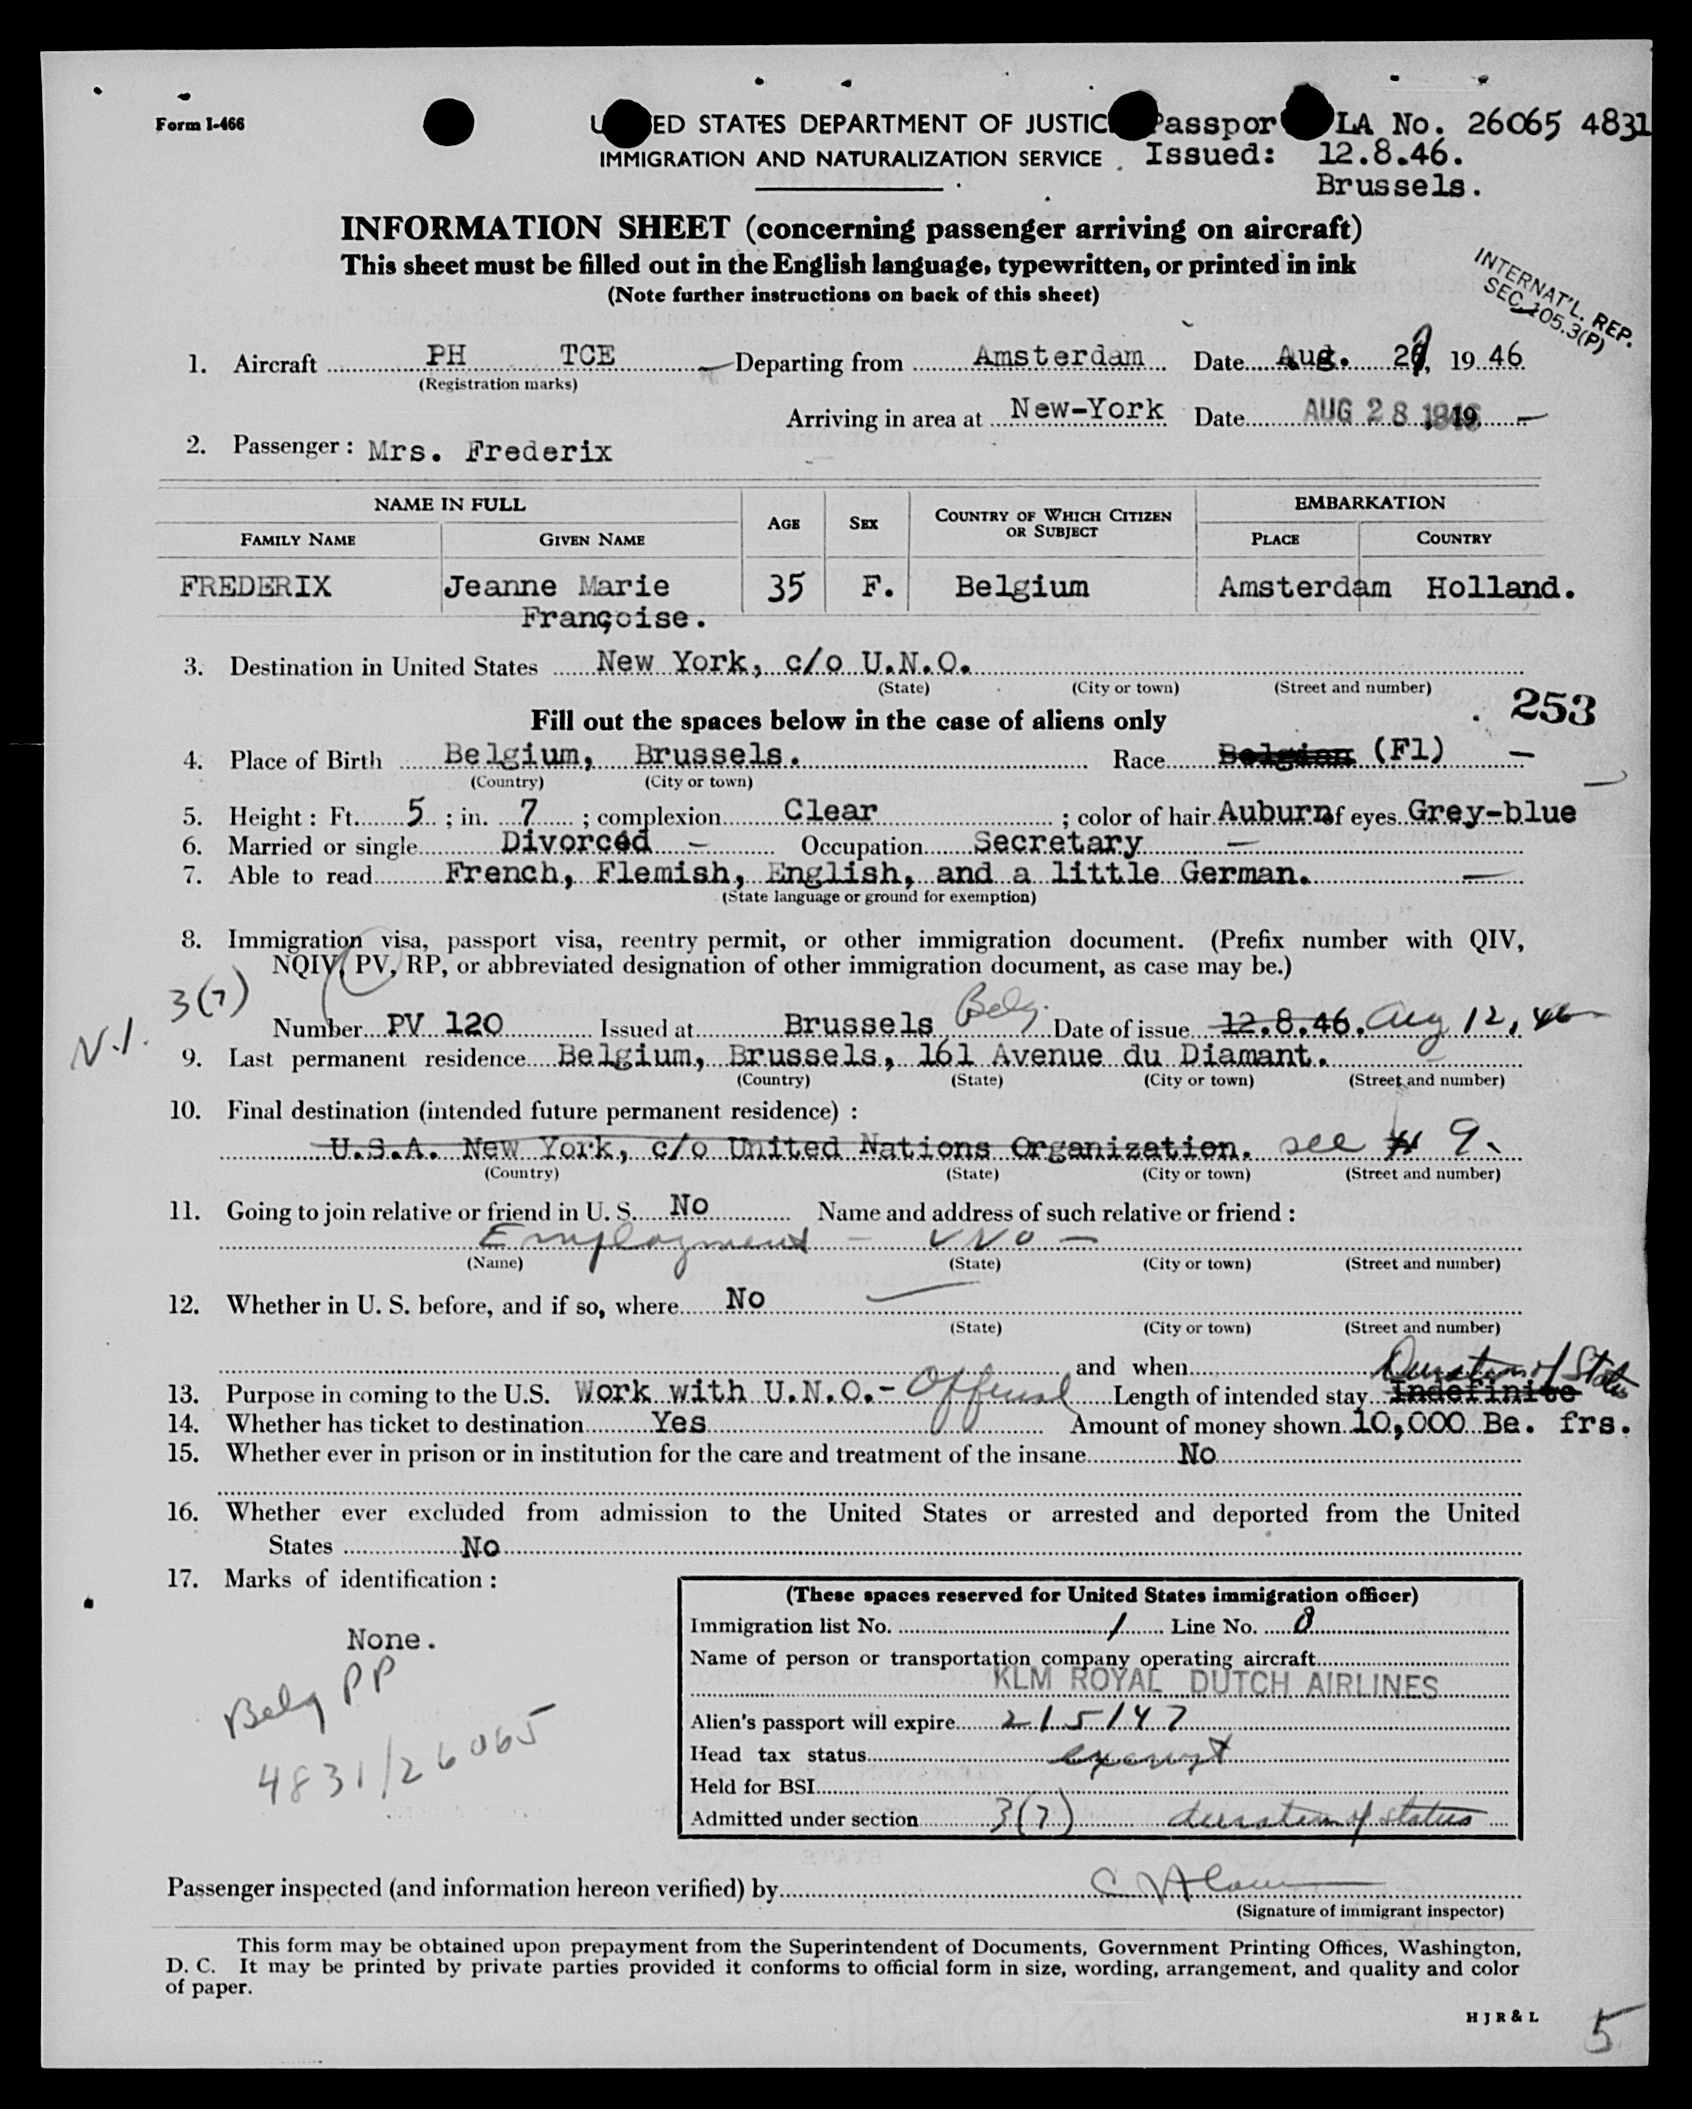 Form I-466
ED STATES DEPARTMENT OF JUSTIC
IMMIGRATION AND NATURALIZATION SERVICE
Passpor LA No. 26065 4831
Issued: 12.8.46.
Brussels.
INFORMATION SHEET (concerning passenger arriving on aircraft)
This sheet must be filled out in the English language, typewritten, or printed in ink
(Note further instructions on back of this sheet)
INTERNAT'L. REP.
SEC. 105.3(P)
1. Aircraft PH TCE Departing from Amsterdam Date Aug. 2 , 19 46
(Registration marks)
Arriving in area at New-York Date AUG 28 1946 19
2. Passenger : Mrs. Frederix
NAME IN FULL AGE SEX COUNTRY OF WHICH CITIZEN OR SUBJECT EMBARKATION
FAMILY NAME GIVEN NAME PLACE COUNTRY
FREDERIX Jeanne Marie 35 F. Belgium Amsterdam Holland.
Françoise.
3. Destination in United States New York, c/o U.N.O.
(State) (City or town) (Street and number)
Fill out the spaces below in the case of aliens only
253
4. Place of Birth Belgium, Brussels. Race Belgian (Fl) —
(Country) (City or town)
5. Height : Ft. 5 ; in. 7 ; complexion Clear ; color of hair Auburn of eyes Grey-blue
6. Married or single Divorced — Occupation Secretary —
7. Able to read French, Flemish, English, and a little German. —
(State language or ground for exemption)
8. Immigration visa, passport visa, reentry permit, or other immigration document. (Prefix number with QIV,
NQIV, PV, RP, or abbreviated designation of other immigration document, as case may be.)
3(7)
N.I.
Number PV 120 Issued at Brussels Belg. Date of issue 12.8.46. Aug 12, 46
9. Last permanent residence Belgium, Brussels, 161 Avenue du Diamant.
(Country) (State) (City or town) (Street and number)
10. Final destination (intended future permanent residence) :
U.S.A. New York, c/o United Nations Organization. see # 9
(Country) (State) (City or town) (Street and number)
11. Going to join relative or friend in U. S. No Name and address of such relative or friend :
Employment — UNO —
(Name) (State) (City or town) (Street and number)
12. Whether in U. S. before, and if so, where No
(State) (City or town) (Street and number)
and when
Duration of Status
13. Purpose in coming to the U.S. Work with U.N.O.- Official Length of intended stay Indefinite
14. Whether has ticket to destination Yes Amount of money shown 10,000 Be. frs.
15. Whether ever in prison or in institution for the care and treatment of the insane No
16. Whether ever excluded from admission to the United States or arrested and deported from the United
States No
17. Marks of identification :
None.
Belg PP
4831/26065
(These spaces reserved for United States immigration officer)
Immigration list No. 1 Line No. 8
Name of person or transportation company operating aircraft
KLM ROYAL DUTCH AIRLINES
Alien's passport will expire 2/5/47
Head tax status exempt
Held for BSI
Admitted under section 3(7) duration of status
Passenger inspected (and information hereon verified) by
(Signature of immigrant inspector)
This form may be obtained upon prepayment from the Superintendent of Documents, Government Printing Offices, Washington,
D. C. It may be printed by private parties provided it conforms to official form in size, wording, arrangement, and quality and color
of paper.
H J R & L
5